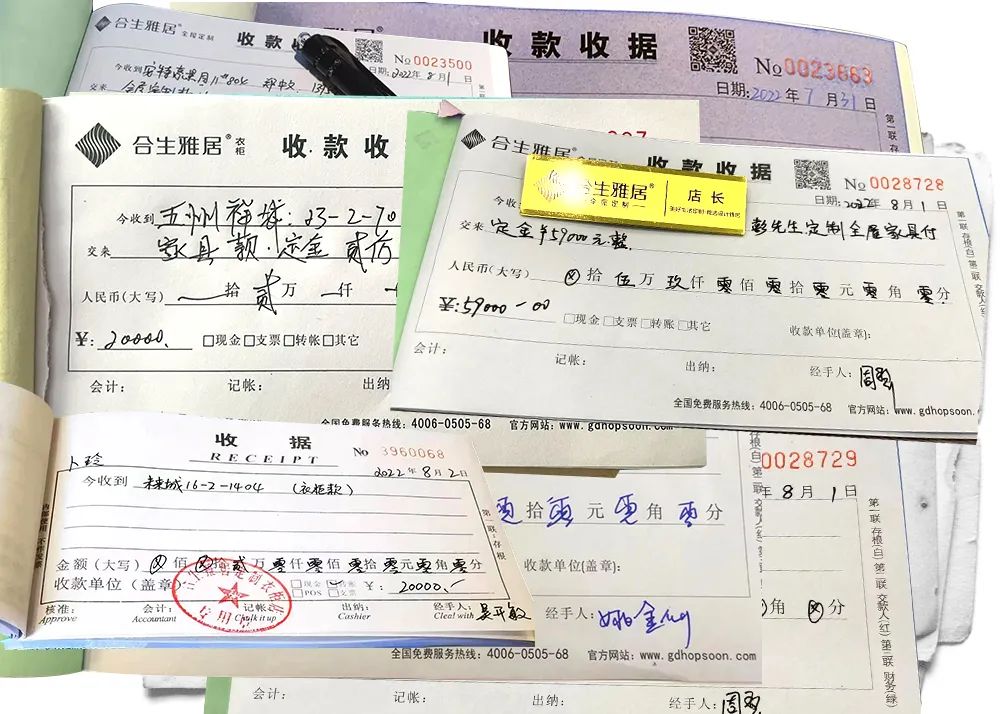 合生雅居® 全屋定制 收款收据
No 0023500
今收到 日期:2022年8月1日
交来
收款收据
No 0023663
日期:2022年7月31日
第一联 存根
合生雅居® 衣柜 收款收
今收到 五州祥城:23-2-70
交来 家具款.定金 贰仟
人民币(大写) 拾贰万 仟
¥: 20000. □现金□支票□转帐□其它
会计: 记帐: 出纳
全国免费服务热线: 4006-0505-68 官方网站: www.gdhopsoon.com
合生雅居® 收款收据
No 0028728
日期: 2022年8月1日
合生雅居® 全屋定制 店长
今收到 彭先生定制全屋家具付
交来 定金¥59000元整.
人民币(大写) ⊗拾伍万玖仟零佰零拾零元零角零分
¥:59000-00 □现金□支票□转账□其它 收款单位(盖章):
会计: 记帐: 出纳: 经手人:
全国免费服务热线: 4006-0505-68 官方网站: www.gdhopsoon.
第一联 存根(白) 第二联 交款人(红) 第三联 财务
收据
RECEIPT No 3960068
卜玲 2022年8月2日
今收到 未来城16-2-1404 (衣柜款)
金额(大写) ⊗佰⊗拾贰万零仟零佰零拾零元零角零分
收款单位(盖章) □现金 □转账 □POS □支票 ¥: 20000.-
核准: 会计: 记帐: 出纳: 经手人: 吴平敏
Approve Accountant Chalk it up Cashier Cleal with
第一联:存根
零拾零元零角零分
收款单位(盖章):
经手人:
全国免费服务热线: 4006-0505-68 官方网站: www.gdhopsoon.com
0028729
年8月1日
角⊗分
第一联 存根(白) 第二联 交款人(红) 第三联 财务(绿)
会计: 记帐: 出纳: 经手人: